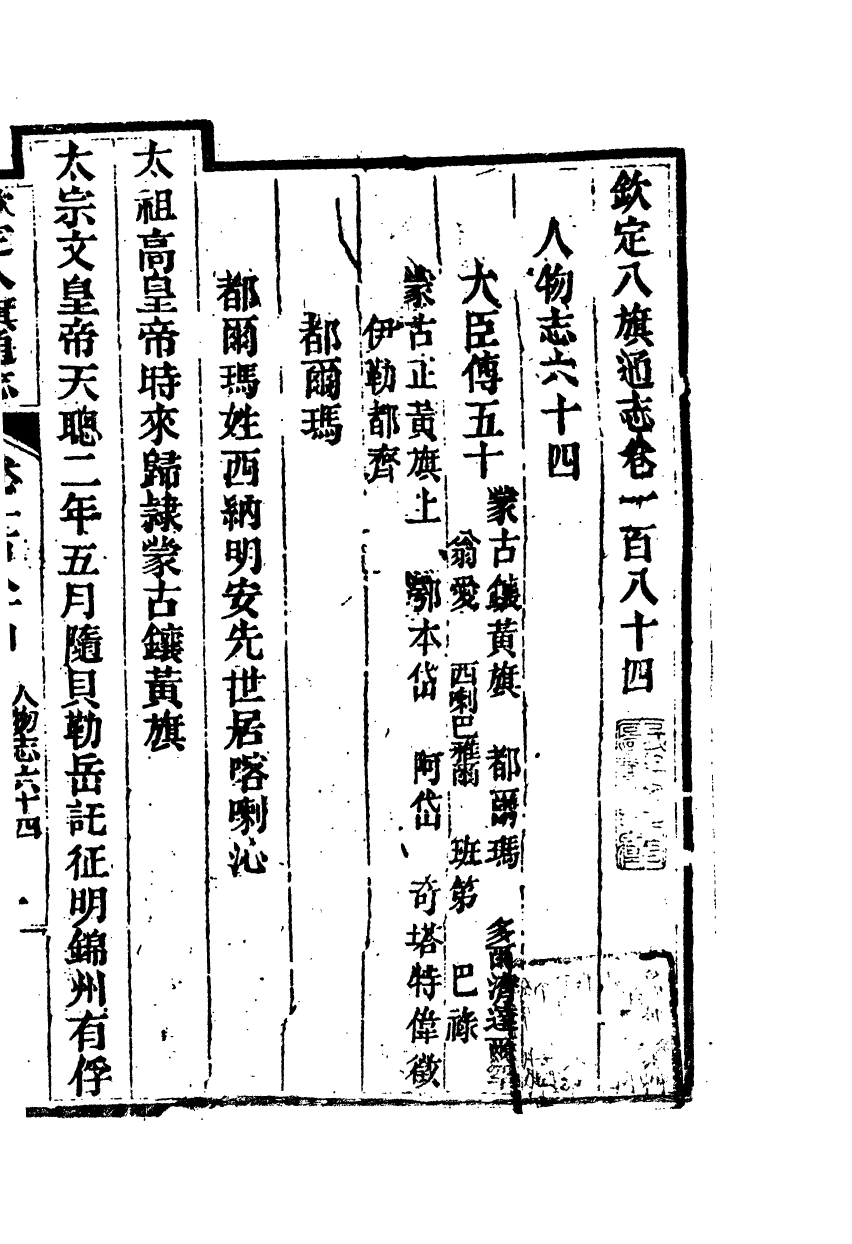 欽定八旗通志卷一百八十四
人物志六十四
大臣傳五十
蒙古鑲黃旗 都爾瑪 多爾濟達爾罕
翁愛 西喇巴雅爾 班第 巴祿
蒙古正黃旗上 鄂本岱 阿岱 奇塔特偉徵
伊勒都齊
都爾瑪
都爾瑪姓西納明安先世居喀喇沁
太祖高皇帝時來歸隷蒙古鑲黃旗
太宗文皇帝天聰二年五月隨貝勒岳託征明錦州有俘
欽定八旗通志
人物志六十四
一